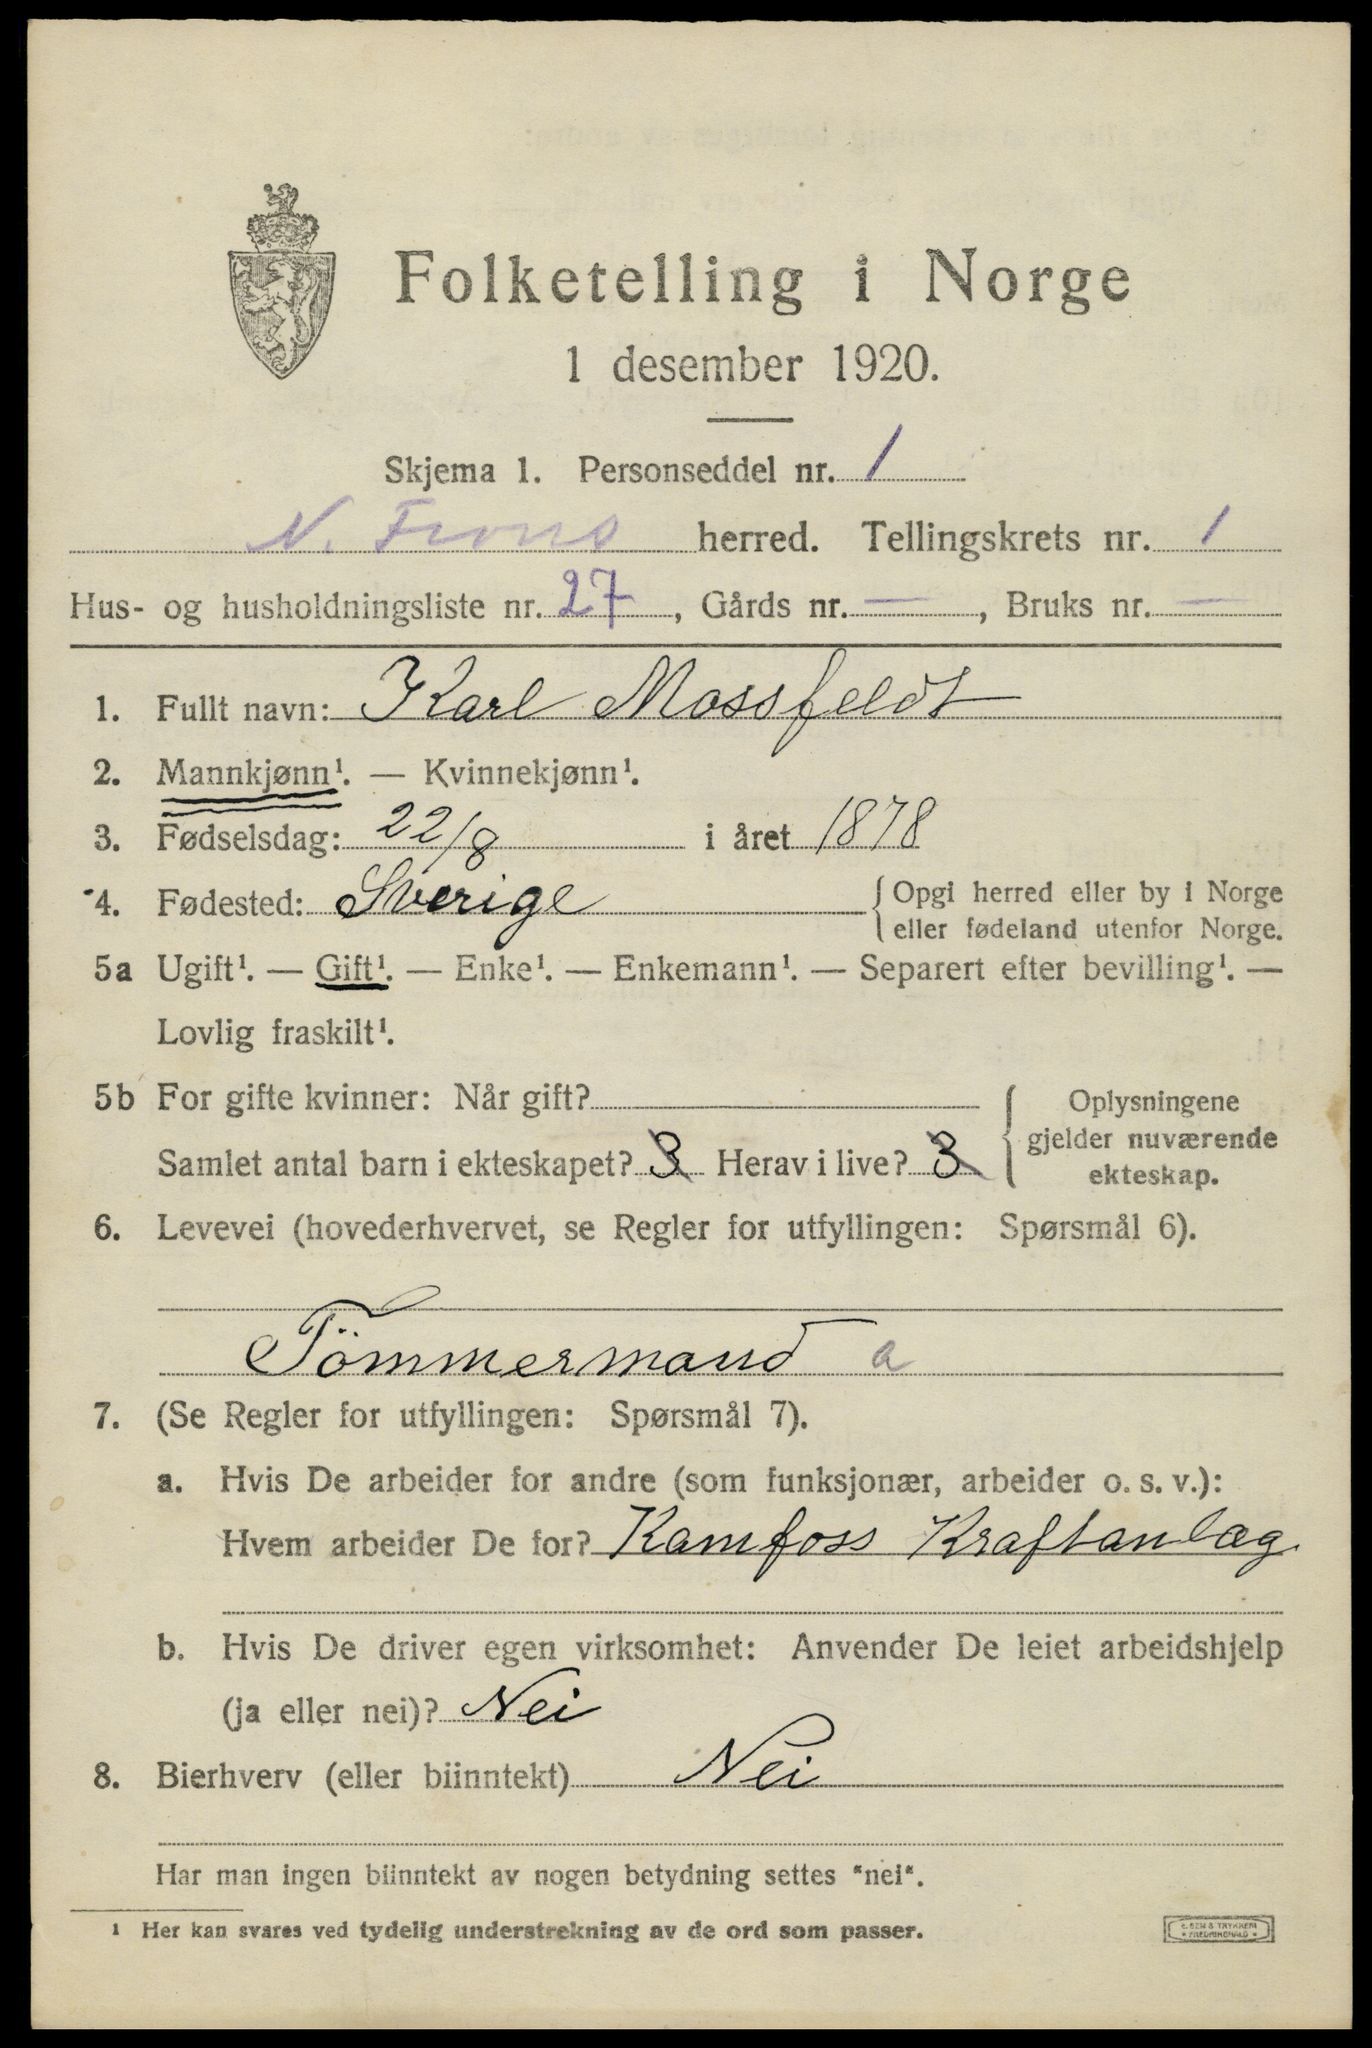 Folketelling i Norge
1 desember 1920.
Skjema 1. Personseddel nr. 1
N. Frons herred. Tellingskrets nr. 1
Hus- og husholdningsliste nr. 27, Gårds nr. —, Bruks nr. —
1. Fullt navn: Karl Mossfeldt
2. Mannkjønn¹. — Kvinnekjønn¹.
3. Fødselsdag: 22/8 i året 1878
4. Fødested: Sverige { Opgi herred eller by i Norge
eller fødeland utenfor Norge.
5a Ugift¹. — Gift¹. — Enke¹. — Enkemann¹. — Separert efter bevilling¹. —
Lovlig fraskilt¹.
5b For gifte kvinner: Når gift?
Samlet antal barn i ekteskapet? 3 Herav i live? 3
Oplysningene
gjelder nuværende
ekteskap.
6. Levevei (hovederhvervet, se Regler for utfyllingen: Spørsmål 6).
Tömmermand a
7. (Se Regler for utfyllingen: Spørsmål 7).
a. Hvis De arbeider for andre (som funksjonær, arbeider o. s. v.):
Hvem arbeider De for? Kamfoss Kraftanlæg.
b. Hvis De driver egen virksomhet: Anvender De leiet arbeidshjelp
(ja eller nei)? Nei
8. Bierhverv (eller biinntekt) Nei
Har man ingen biinntekt av nogen betydning settes "nei".
¹ Her kan svares ved tydelig understrekning av de ord som passer.